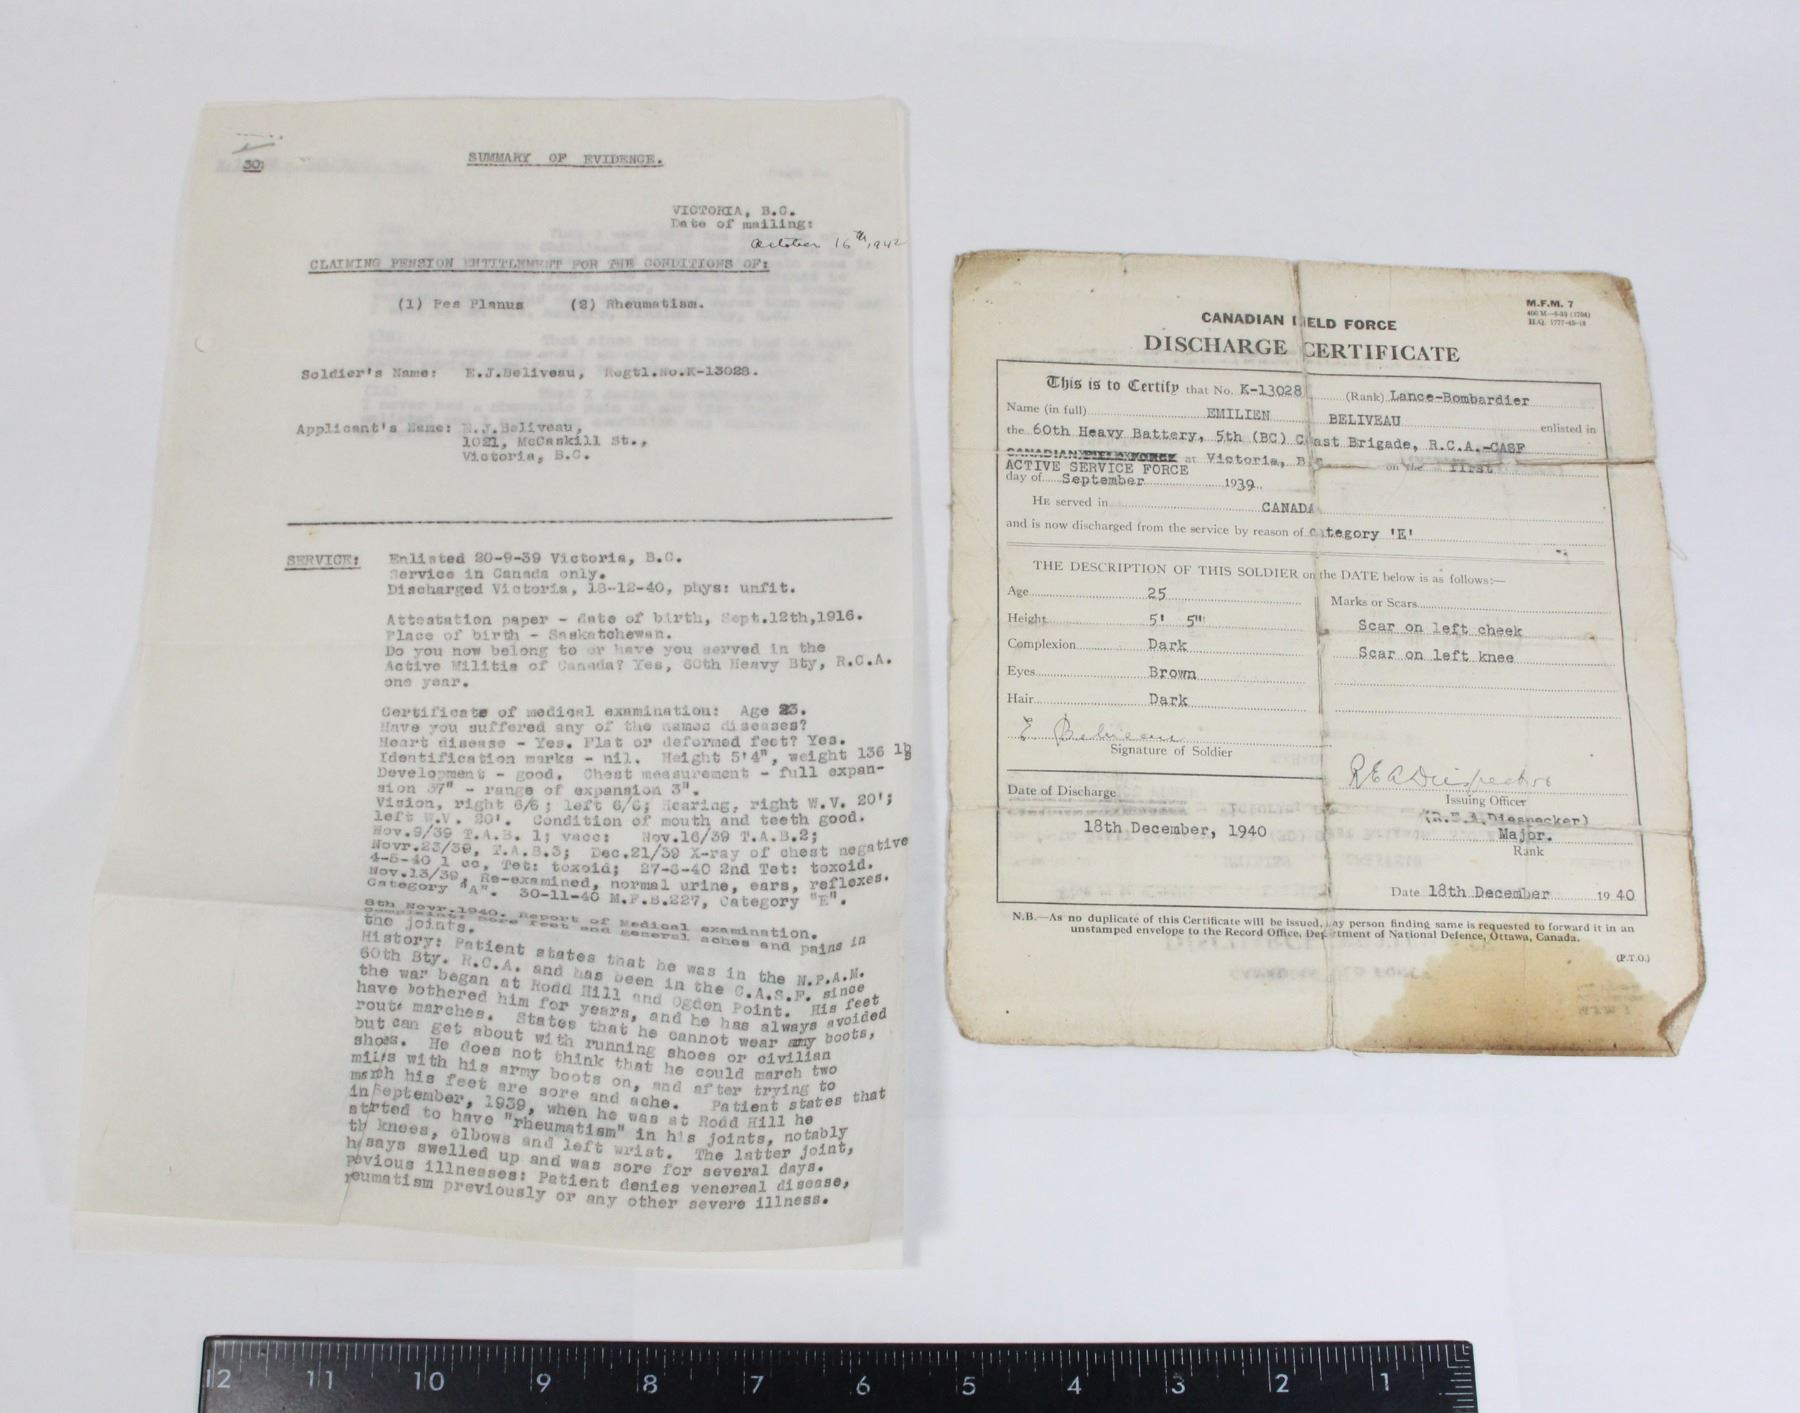 30
SUMMARY OF EVIDENCE.
VICTORIA, B.C.
Date of mailing:
October 16th, 1942
CLAIMING PENSION ENTITLEMENT FOR THE CONDITIONS OF:
(1) Pes Planus (2) Rheumatism.
Soldier's Name: E.J.Beliveau, Regtl.No.K-13028.
Applicant's Name: E.J.Beliveau,
1021, McCaskill St.,
Victoria, B.C.
SERVICE: Enlisted 20-9-39 Victoria, B.C.
Service in Canada only.
Discharged Victoria, 18-12-40, phys: unfit.
Attestation paper - date of birth, Sept.12th,1916.
Place of birth - Saskatchewan.
Do you now belong to or have you served in the
Active Militia of Canada? Yes, 60th Heavy Bty, R.C.A.
one year.
Certificate of medical examination: Age 23.
Have you suffered any of the names diseases?
Heart disease - Yes. Flat or deformed feet? Yes.
Identification marks - nil. Height 5'4", weight 136 lbs
Development - good. Chest measurement - full expan-
sion 37" - range of expansion 3".
Vision, right 6/6; left 6/6; Hearing, right W.V. 20';
left W.V. 20'. Condition of mouth and teeth good.
Nov.9/39 T.A.B. 1; vacc: Nov.16/39 T.A.B.2;
Novr.23/39, T.A.B.3; Dec.21/39 X-ray of chest negative
4-6-40 1 cc, Tet: toxoid; 27-6-40 2nd Tet: toxoid.
Nov.13/39, Re-examined, normal urine, ears, reflexes.
Category "A". 30-11-40 M.F.B.227, Category "E".
8th Novr.1940. Report of Medical examination.
Complaint: Sore feet and general aches and pains in
the joints.
History: Patient states that he was in the N.P.A.M.
60th Bty. R.C.A. and has been in the C.A.S.F. since
the war began at Rodd Hill and Ogden Point. His feet
have bothered him for years, and he has always avoided
route marches. States that he cannot wear army boots,
but can get about with running shoes or civilian
shoes. He does not think that he could march two
miles with his army boots on, and after trying to
march his feet are sore and ache. Patient states that
in September, 1939, when he was at Rodd Hill he
started to have "rheumatism" in his joints, notably
th knees, elbows and left wrist. The latter joint,
h says swelled up and was sore for several days.
previous illnesses: Patient denies venereal disease,
reumatism previously or any other severe illness.
M.F.M. 7
400 M—8-39 (1704)
H.Q. 1772-39-18
CANADIAN FIELD FORCE
DISCHARGE CERTIFICATE
This is to Certify that No. K-13028 (Rank) Lance-Bombardier
Name (in full) EMILIEN BELIVEAU enlisted in
the 60th Heavy Battery, 5th (BC) Coast Brigade, R.C.A.-CASF
CANADIAN FIELD FORCE at Victoria, B.C. on the first
ACTIVE SERVICE FORCE
day of September 1939
HE served in CANADA
and is now discharged from the service by reason of Category 'E'
THE DESCRIPTION OF THIS SOLDIER on the DATE below is as follows:—
Age 25
Marks or Scars
Height 5' 5"
Scar on left cheek
Complexion Dark
Scar on left knee
Eyes Brown
Hair Dark
E Beliveau
Signature of Soldier
R E A Diespecker
Issuing Officer
(R.E.A.Diespecker)
Date of Discharge
18th December, 1940
Major.
Rank
Date 18th December 1940
N.B.—As no duplicate of this Certificate will be issued, any person finding same is requested to forward it in an
unstamped envelope to the Record Office, Department of National Defence, Ottawa, Canada.
(P.T.O.)
12 11 10 9 8 7 6 5 4 3 2 1